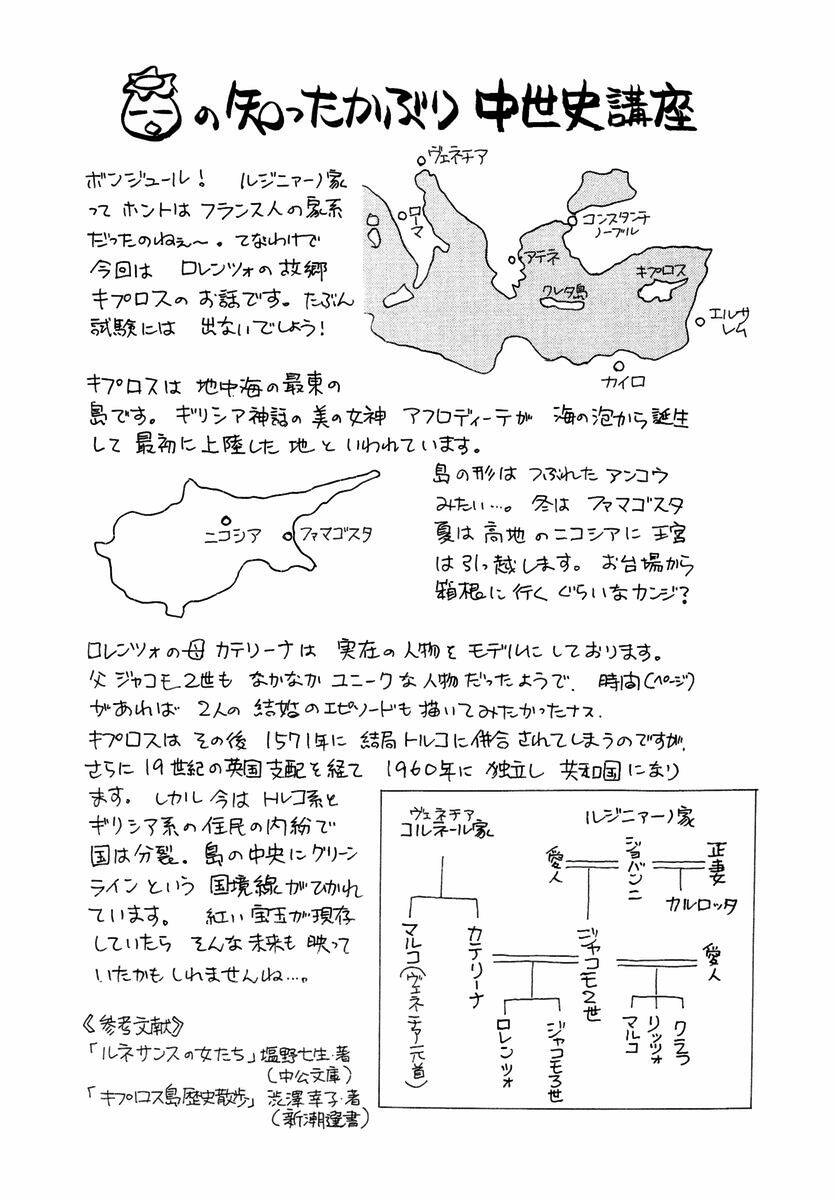 の知ったかぶり 中世史講座
ボンジュール! ルジニァーノ家
って ホントは フランス人の家系
だったのねぇ〜。てなわけで
今回は ロレンツォの故郷
キプロスの お話です。たぶん
試験には 出ないでしょう!
ヴェネチア
ローマ
コンスタンチ
ノープル
アテネ
クレタ島
キプロス
エルサ
レム
カイロ
キプロスは 地中海の最東の
島です。ギリシア神話の美の女神 アフロディーテが 海の泡から誕生
して 最初に上陸した 地と いわれています。
ニコシア
ファマゴスタ
島の形は つぶれた アンコウ
みたい…。冬は ファマゴスタ
夏は 高地のニコシアに 王宮
は引っ越します。お台場から
箱根に行く ぐらいなカンジ?
ロレンツォの母 カテリーナは 実在の人物を モデルに しております。
父 ジャコモ2世も なかなか ユニークな人物だったようで、時間(ページ)
があれば 2人の 結婚のエピソードも 描いてみたかったナス.
キプロスは その後 1571年に 結局トルコに併合されてしまうのですが、
さらに 19世紀の英国支配を経て 1960年に 独立し 共和国になり
ます。しかし 今は トルコ系と
ギリシア系の住民の内紛で
国は分裂。島の中央にグリーン
ラインという 国境線がひかれ
ています。 紅い宝玉が現存
していたら そんな未来も 映って
いたかもしれませんね…。
《参考文献》
「ルネサンスの女たち」塩野七生・著
(中公文庫)
「キプロス島歴史散歩」渋澤幸子・著
(新潮選書)
ヴェネチア
コルネール家
ルジニァーノ家
愛人
ジョバンニ
正妻
カルロッタ
マルコ(ヴェネチア元首)
カテリーナ
ジャコモ2世
愛人
ロレンツォ
ジャコモ3世
マルコ
リッツォ
クララ